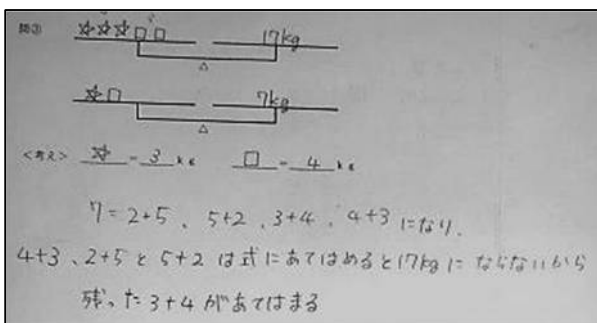 問③ ☆☆☆□□ 17kg
☆□ 7kg
<考え> ☆=3kg □=4kg
7=2+5、5+2、3+4、4+3になり、
4+3、2+5と5+2は式にあてはめると17kgにならないから
残った3+4があてはまる